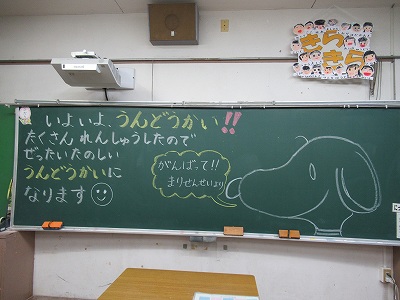 きらきら
いよいよ、うんどうかい!!
たくさん れんしゅうしたので
ぜったいたのしい
うんどうかいに
なります
がんばって!!
まりせんせいより